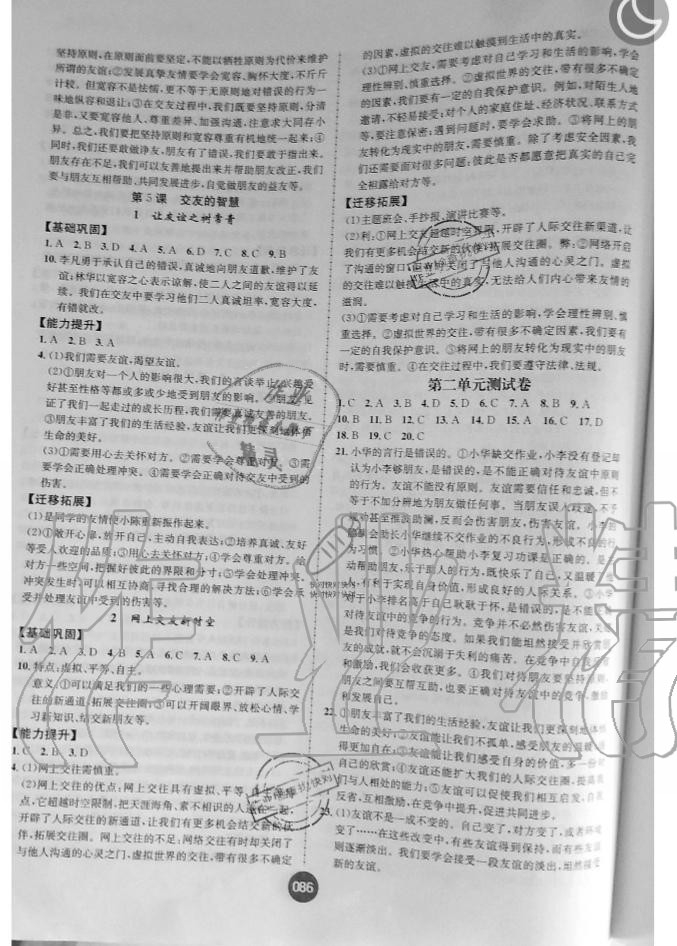 坚持原则,在原则面前要坚定,不能以牺牲原则为代价来维护
所谓的友谊;②发展真挚友情要学会宽容、胸怀大度,不斤斤
计较。但宽容不是怯懦,更不等于无原则地对错误的行为一
味地纵容和退让;③在交友过程中,我们既要坚持原则,分清
是非,又要宽容他人、尊重差异、加强沟通,注意求大同存小
异。总之,我们要把坚持原则和宽容尊重有机地统一起来;④
同时,我们还要敢做净友,朋友有了错误,我们要敢于指出来。
朋友存在不足,我们可以友善地提出来并帮助朋友改正,我们
要与朋友互相帮助、共同发展进步,自觉做朋友的益友等。
第5课 交友的智慧
1 让友谊之树常青
【基础巩固】
1. A 2. B 3. D 4. A 5. A 6. D 7. C 8. C 9. B
10. 李凡勇于承认自己的错误,真诚地向朋友道歉,维护了友
谊;林华以宽容之心表示谅解,使二人之间的友谊得以延
续。我们在交友中要学习他们二人真诚坦率,宽容大度,
有错就改。
【能力提升】
1. A 2. B 3. A
4. (1)我们需要友谊,渴望友谊。
(2)①朋友对一个人的影响很大,我们的言谈举止、兴趣爱
好甚至性格等都或多或少地受到朋友的影响。②朋友,见
证了我们一起走过的成长历程,我们需要真诚友善的朋友。
③朋友丰富了我们的生活经验,友谊让我们更深刻地体悟
生命的美好。
(3)①需要用心去关怀对方。②学会尊重对方。③
要学会正确处理冲突。④学会正确对待交友中受到的
伤害。
【迁移拓展】
(1)是同学的友情使小陈重新振作起来。
(2)①敞开心扉,放开自己,主动表达;②培养真诚、友好
等受人欢迎的品质;③用心去关怀对方;④学会尊重对方。给
对方一些空间,把握好彼此的界限和分寸;⑤学会处理冲突。
冲突发生时,可以相互协商,寻找合理的解决方法;⑥学会承
受并处理友谊中受到的伤害等。
2 网上交友新时空
【基础巩固】
1. A 2. A 3. D 4. A 5. A 6. B 7. C 8. C 9. A
10. 特点:虚拟、平等、自主。
意义:①可以满足我们的一些心理需要;②开辟了人际交
往的新通道,拓展交往圈;③可以开阔眼界、放松心情、学
习新知识、结交新朋友等。
【能力提升】
1. C 2. B 3. D
4. (1)网上交往需慎重。
(2)网上交往的优点:网上交往具有虚拟、平等
点,它超越时空限制,把天涯海角、素不相识的人连在一起,
开辟了人际交往的新通道,让我们更有机会结交新的伙
伴,拓展交往圈。网上交往的不足:网络交往有时却关闭了
与他人沟通的心灵之门,虚拟世界的交往,带有很多不确定
的因素,虚拟的交往难以触摸到生活中的真实。
(3)①网上交友,需要考虑对自己学习和生活的影响,学会
理性辨别,慎重选择。②虚拟世界的交往,带有很多不确定
的因素,我们要有一定的自我保护意识。例如,对陌生人地
邀请,不轻易接受;对个人的家庭住址、经济状况、联系方式
等,要注意保密;遇到问题时,要学会求助。③将网上的朋
友转化为现实中的朋友,需要慎重。除了考虑安全因素,我
们还需要面对很多问题:彼此是否都愿意把真实的自己完
全袒露给对方等。
【迁移拓展】
(1)主题班会、手抄报、演讲比赛等。
(2)利:①网上交友超越时空界限,开辟了人际交往新渠道,让
我们有更多机会结交新的伙伴,拓展交往圈。弊:②网络开启
了沟通的窗口,但有时关闭了与他人沟通的心灵之门。虚拟
的交往难以触摸生活中的真实,无法给人们内心带来友情的
滋润。
(3)①需要考虑对自己学习和生活的影响,学会理性辨别,慎
重选择。②虚拟世界的交往,带有很多不确定因素,我们要有一
定的自我保护意识。③将网上的朋友转化为现实中的朋友
时,需要慎重。④在交往过程中,我们要遵守法律、法规。
第二单元测试卷
1. C 2. C 3. A 4. B 5. D 6. C 7. A 8. A 9. A
10. B 11. B 12. C 13. A 14. D 15. A 16. C 17. D
18. B 19. C 20. C
21. 小华的言行是错误的。①小华缺交作业,小李没有登记却
认为小李够朋友,是错误的,是不能正确对待友谊中原则
的行为。友谊不能没有原则。友谊需要信任和忠诚,但不
等于不加分辨地为朋友做任何事。当朋友误入歧途,不予
会助长小华继续不交作业的不良行为,形成不良的行
为习惯。②小华热心帮助小李复习功课是正确的。
动帮助朋友,乐于助人的行为,既快乐了自己,又温暖了他
人,有利实现自身价值,形成良好的人际关系。
于小李排名高于自己耿耿于怀,是错误的,是不能
对待友谊中的竞争的行为。竞争并不必然伤害友谊,关键
是我们对待竞争的态度。如果我们能坦然接受并欣赏朋
友的成就,就不会沉溺于失利的痛苦。在竞争中自我反省
和激励,我们会收获更多。④我们对待朋友要坚持原则,
朋友之间要互帮互助,也要正确对待友谊中的竞争,激励
利发展自己。
22. ①朋友丰富了我们的生活经验,友谊让我们更深刻地体悟
生命的美好。②友谊能让我们不孤单,感受朋友的温暖,
得更加自在。③友谊能让我们感受自身的价值,多一份对
自己的欣赏;④友谊还能扩大我们的人际交往圈,提高我
们与人相处的能力;⑤友谊可以促使我们相互启发,自我
反省,互相激励,在竞争中提升,促进共同进步。
23. (1)友谊不是一成不变的。自己变了,对方变了,或者环境
变了……在这些改变中,有些友谊得到保持,而有些友谊
则逐渐淡出。我们要学会接受一段友谊的淡出,坦然接受
新的友谊。
086